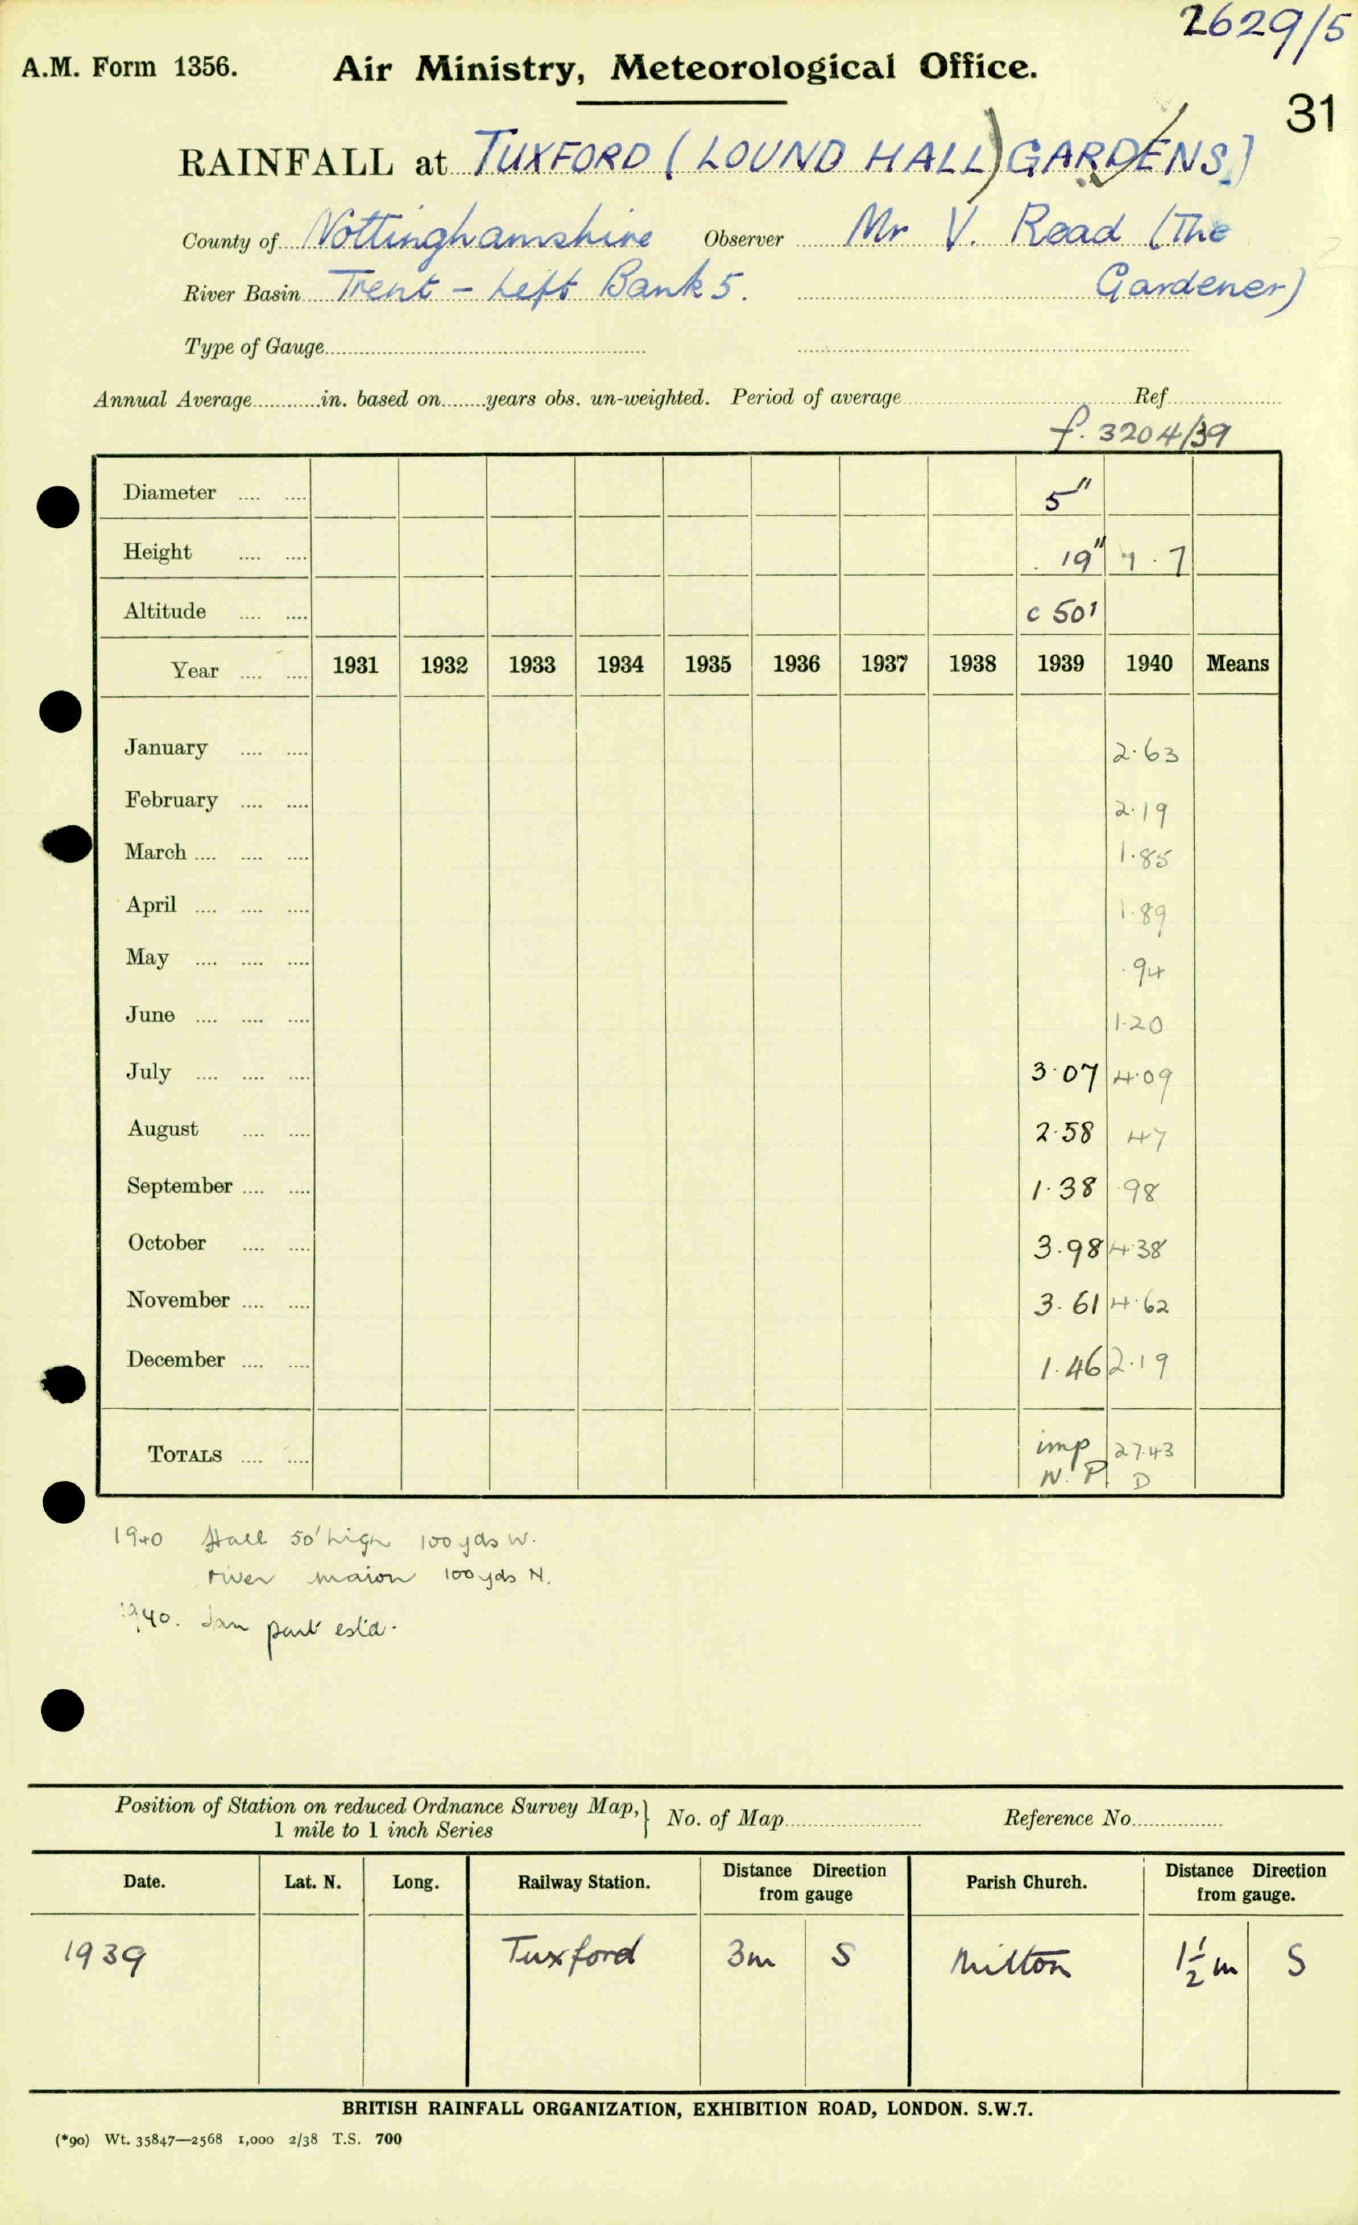 2629/5
A.M. Form 1356. Air Ministry, Meteorological Office.
31
RAINFALL at TUXFORD (LOUND HALL) GARDENS)
County of Nottinghamshire Observer Mr V. Read (The
River Basin Trent - Left Bank 5. Gardener)
Type of Gauge
Annual Average in. based on years obs. un-weighted. Period of average Ref
f. 3204/39
Diameter 5"
Height 19"
Altitude c 50'
Year 1931 1932 1933 1934 1935 1936 1937 1938 1939 1940 Means
January 2.63
February 2.19
March 1.85
April 1.89
May .94
June 1.20
July 3.07 4.09
August 2.58 .47
September 1.38 .98
October 3.98 4.38
November 3.61 4.62
December 1.46 2.19
TOTALS imp 27.43
N.P. D
1940 Hall 50' high 100 yds W.
river maion 100 yds N.
1940. Jan part est'd.
Position of Station on reduced Ordnance Survey Map, } No. of Map Reference No
1 mile to 1 inch Series
Date. Lat. N. Long. Railway Station. Distance Direction from gauge Parish Church. Distance Direction from gauge.
1939 Tuxford 3m S Milton 1½m S
BRITISH RAINFALL ORGANIZATION, EXHIBITION ROAD, LONDON. S.W.7.
(*90) Wt. 35847—2568 1,000 2/38 T.S. 700